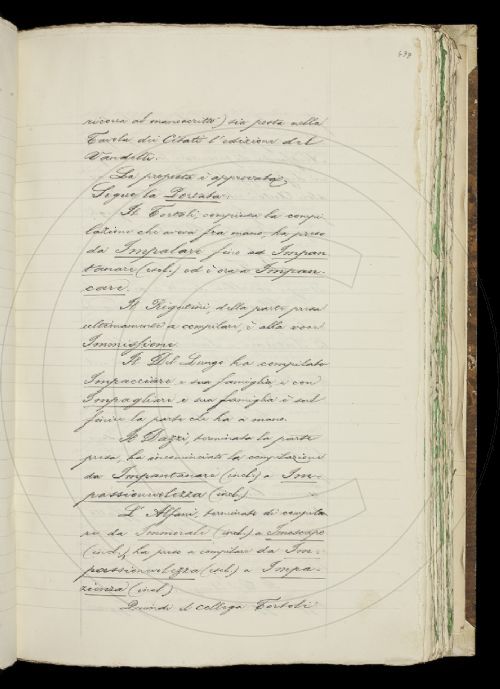 439
ricorra al manoscritto) sia posta nella
Tavola dei Citati l'edizione del
Vandelli.
La proposta è approvata.
Segue la Portata:
Il Tortoli, compiuta la compi-
lazione che aveva fra mano, ha preso
da Impalare fino ad Impan-
tanare (escl.) ed è ora a Impan-
care.
Il Rigutini, della parte presa
ultimamente a compilare, è alla voce
Immissione.
Il Del Lungo ha compilato
Impacciare e sua famiglia e con
Impagliare e sua famiglia è sul
finire la parte che ha a mano.
Il Dazzi, terminata la parte
presa, ha incominciato la compilazione
da Impantanare (incl.) a Im-
passionevolezza (incl.)
L'Alfani, terminato di compila-
re da Immorali (incl.) a Imoscapo
(incl.), ha preso a compilare da Im-
passionevolezza (escl.) a Impa-
zienza (incl.)
Quindi il collega Tortoli